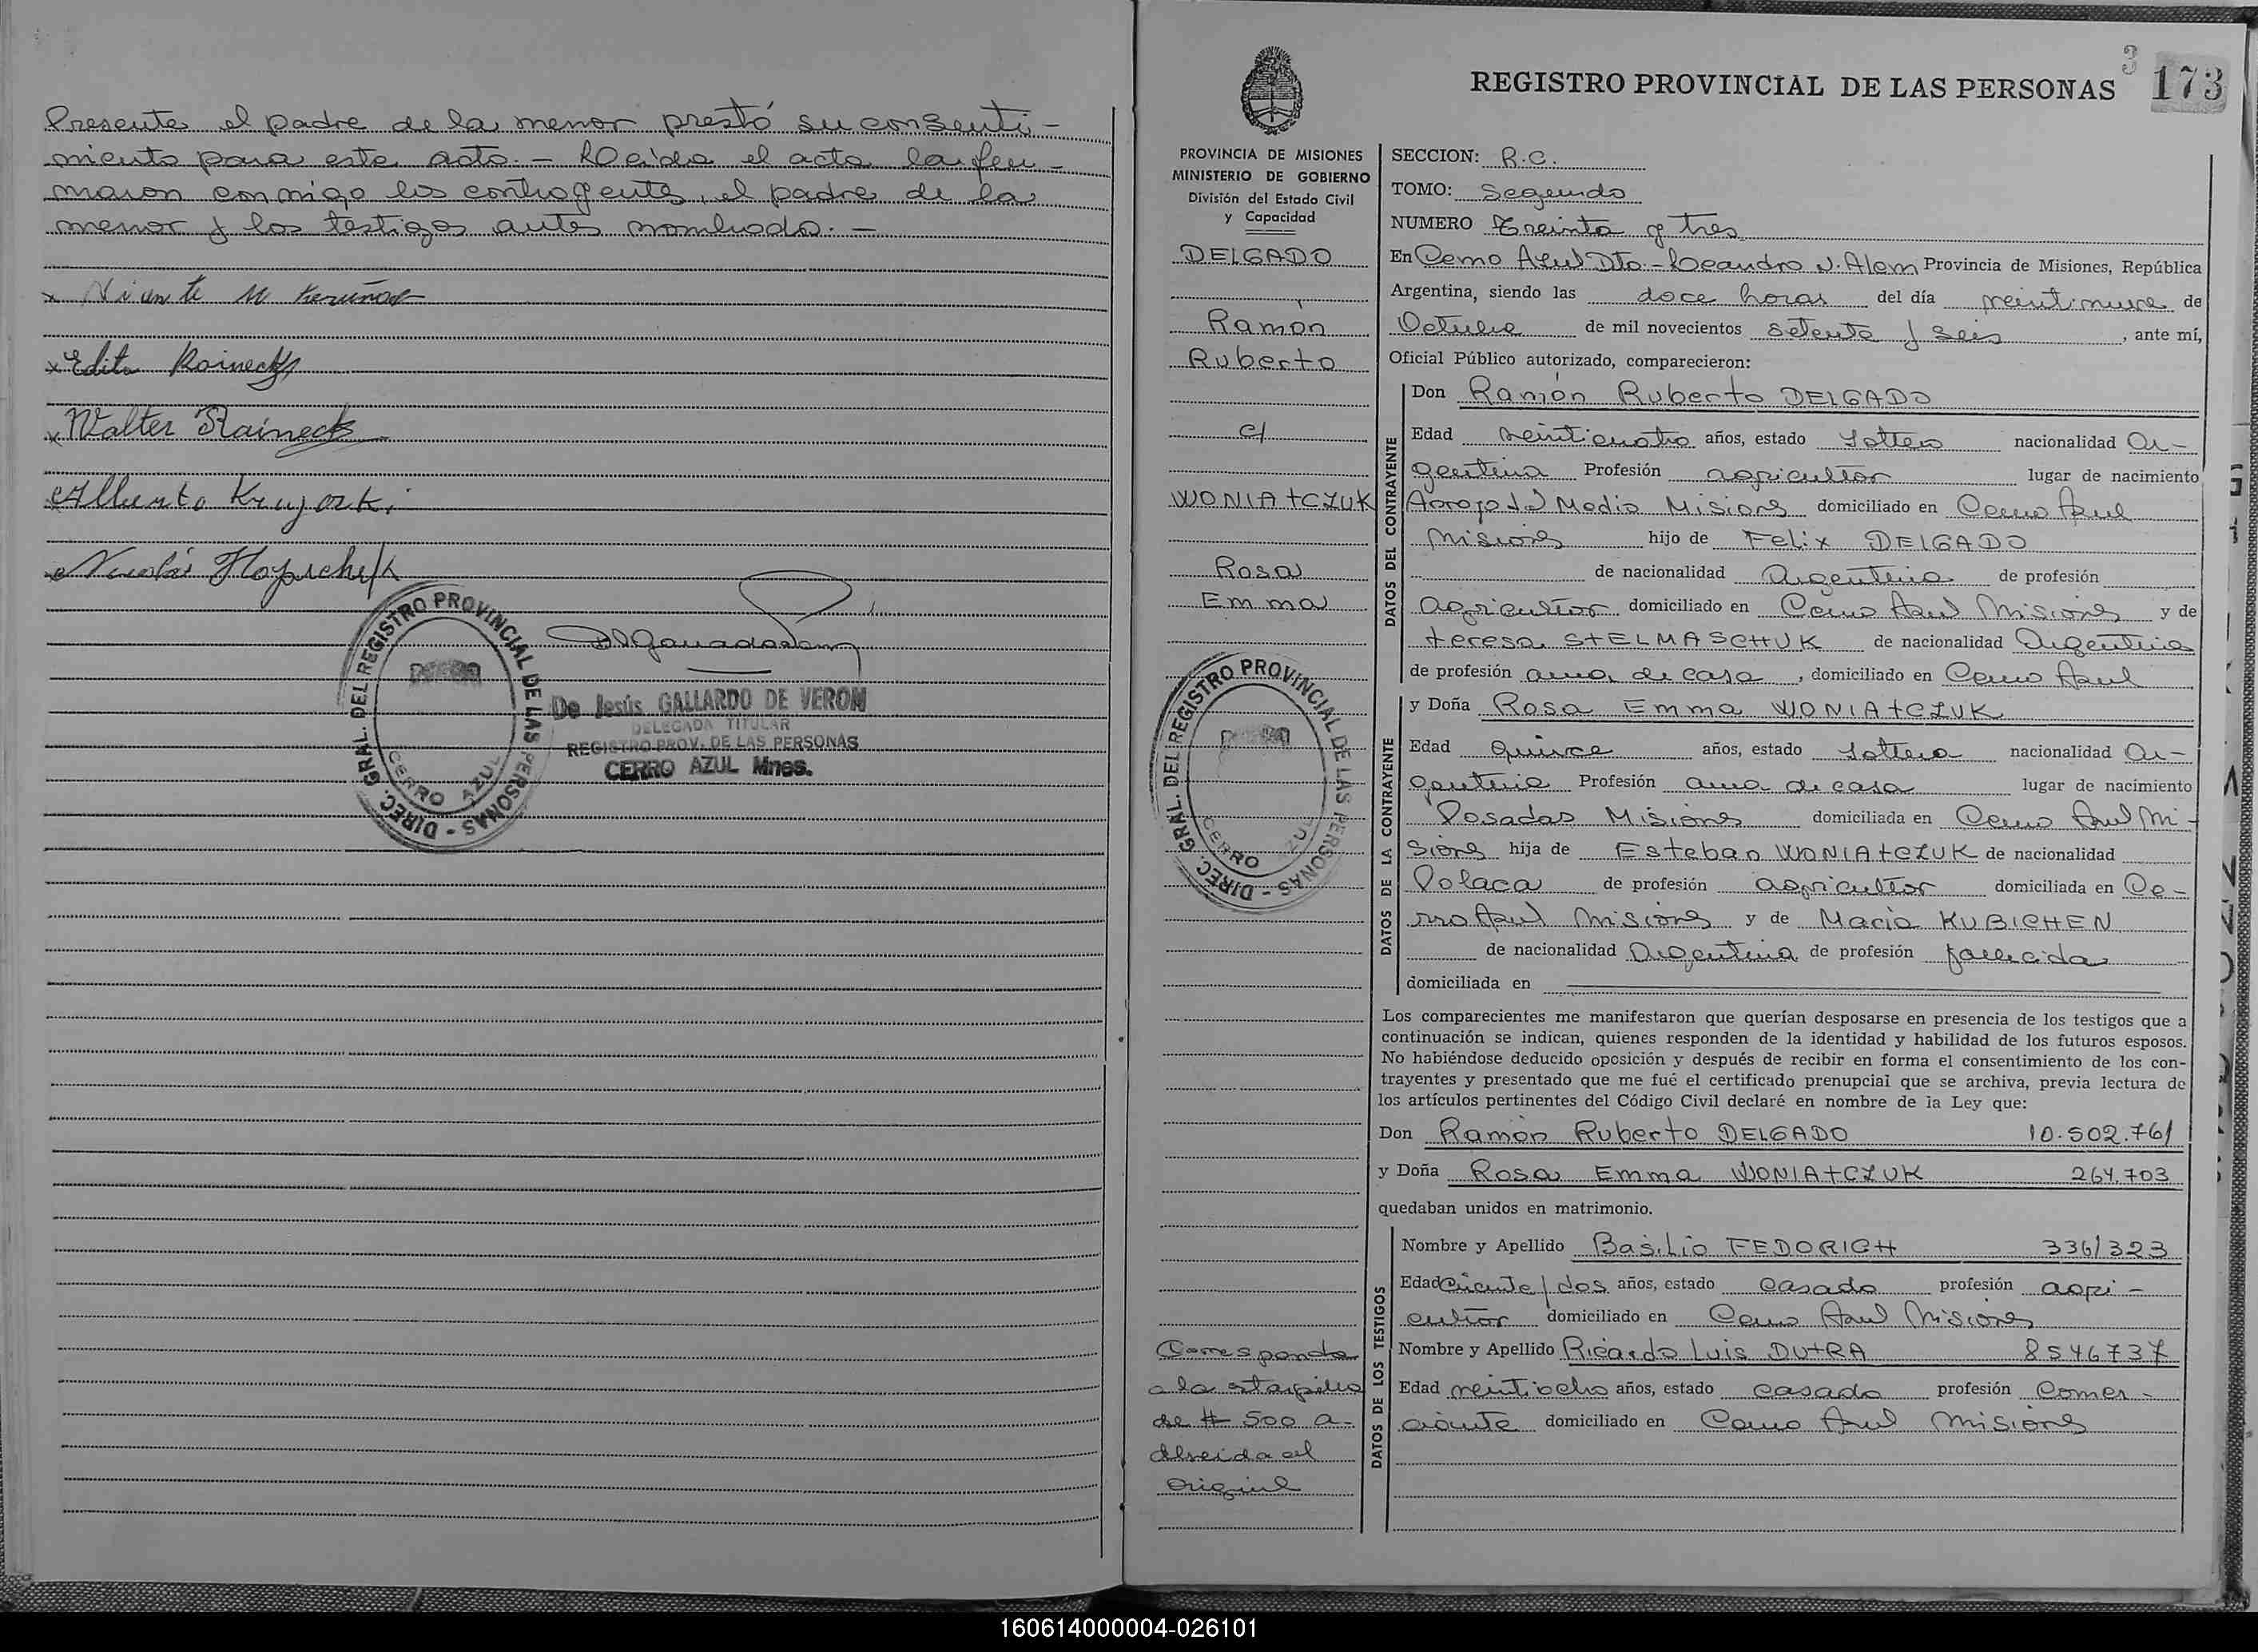 Presente el padre de la menor prestó su consenti-
miento para este acto. - Leida el acta la fir-
maron conmigo los contrayentes, el padre de la
menor y los testigos antes nombrado. -
x
x Edita Rainecks
x Walter Rainecks
Alberto
x Nicolás
DIREC. GRAL. DEL REGISTRO PROVINCIAL DE LAS PERSONAS -
CERRO AZUL
De Jesús GALLARDO DE VERON
DELEGADA TITULAR
REGISTRO PROV. DE LAS PERSONAS
CERRO AZUL Mnes.
REGISTRO PROVINCIAL DE LAS PERSONAS
3 173
PROVINCIA DE MISIONES
MINISTERIO DE GOBIERNO
División del Estado Civil
y Capacidad
DELGADO
Ramón
Ruberto
c/
WONIATCZUK
Rosa
Emma
DIREC. GRAL. DEL REGISTRO PROVINCIAL DE LAS PERSONAS -
CERRO AZUL
Corresponde
a la estampilla
de $ 500 a-
al
original
SECCION: R.C.
TOMO: Segundo
NUMERO Treinta y tres
En Cerro Azul Dto.-Leandro N. Alem Provincia de Misiones, República
Argentina, siendo las doce horas del día veintinueve de
Octubre de mil novecientos setenta y seis, ante mí,
Oficial Público autorizado, comparecieron:
DATOS DEL CONTRAYENTE
Don Ramón Ruberto DELGADO
Edad veinticuatro años, estado soltero nacionalidad Ar-
gentina Profesión agricultor lugar de nacimiento
Arroyo del Medio Misiones domiciliado en Cerro Azul
Misiones hijo de Felix DELGADO
de nacionalidad Argentina de profesión
agricultor domiciliado en Cerro Azul Misiones y de
teresa STELMASCHUK de nacionalidad Argentina
de profesión ama de casa, domiciliado en Cerro Azul
DATOS DE LA CONTRAYENTE
y Doña Rosa Emma WONIATCZUK
Edad quince años, estado soltera nacionalidad Ar-
gentina Profesión ama de casa lugar de nacimiento
Posadas Misiones domiciliada en Cerro Azul Mi-
siones hija de Esteban WONIATCZUK de nacionalidad
Polaca de profesión agricultor domiciliada en Ce-
rro Azul Misiones y de Maria KUBICHEN
de nacionalidad Argentina de profesión fallecida
domiciliada en
Los comparecientes me manifestaron que querían desposarse en presencia de los testigos que a
continuación se indican, quienes responden de la identidad y habilidad de los futuros esposos.
No habiéndose deducido oposición y después de recibir en forma el consentimiento de los con-
trayentes y presentado que me fué el certificado prenupcial que se archiva, previa lectura de
los artículos pertinentes del Código Civil declaré en nombre de la Ley que:
Don Ramón Ruberto DELGADO 10.502.761
y Doña Rosa Emma WONIATCZUK 264.703
quedaban unidos en matrimonio.
DATOS DE LOS TESTIGOS
Nombre y Apellido Basilio FEDORICH 3361323
Edad años, estado casado profesión agri-
cultor domiciliado en Cerro Azul Misiones
Nombre y Apellido Ricardo Luis DUTRA 8546737
Edad veintiocho años, estado casado profesión Comer-
ciante domiciliado en Cerro Azul Misiones
160614000004-026101